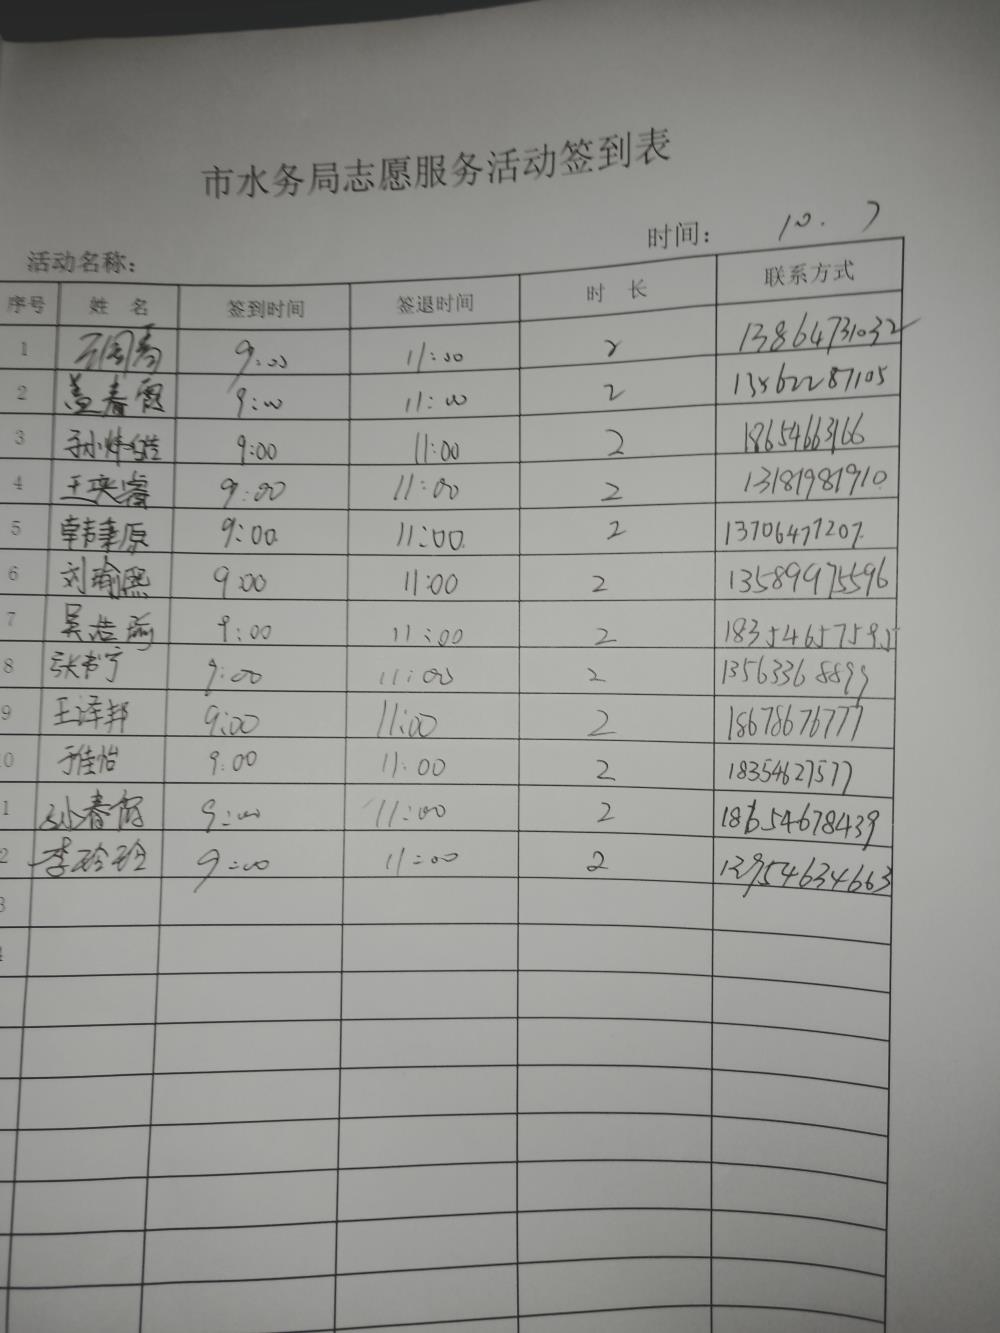 市水务局志愿服务活动签到表
时间: 10.7
活动名称:
序号 姓 名 签到时间 签退时间 时 长 联系方式
1 9:00 11:00 2 13864731032
2 盖春霞 9:00 11:00 2 13562287105
3 9:00 11:00 2 18654663166
4 王奕睿 9:00 11:00 2 13181981910
5 韩秉原 9:00 11:00 2 13706471207
6 刘瑜熙 9:00 11:00 2 13589975596
7 吴浩瑜 9:00 11:00 2 18354657595
8 张书宁 9:00 11:00 2 13563368899
9 王泽邦 9:00 11:00 2 18678676777
0 于佳怡 9:00 11:00 2 18354627577
1 孙春霞 9:00 11:00 2 18654678439
2 李玲玲 9:00 11:00 2 13954634663
3
4